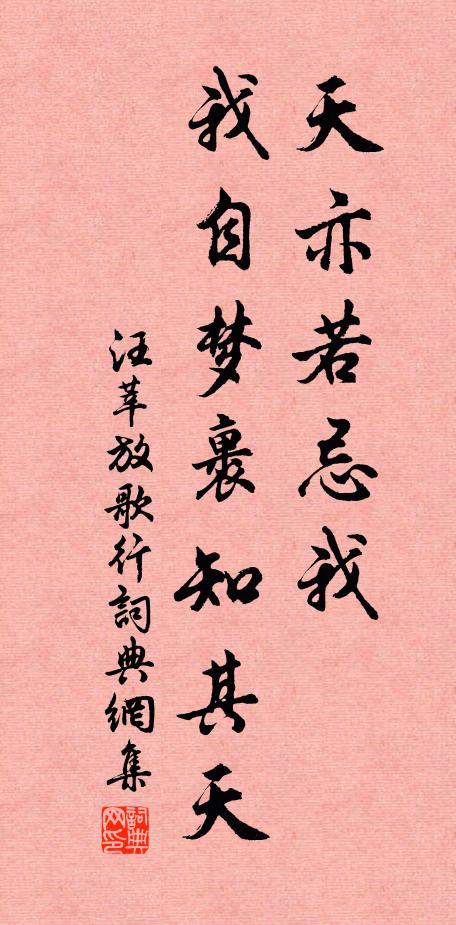 天亦若忌我
我自梦裹知其天
汪莘放歌行詞典網集
詞典网印